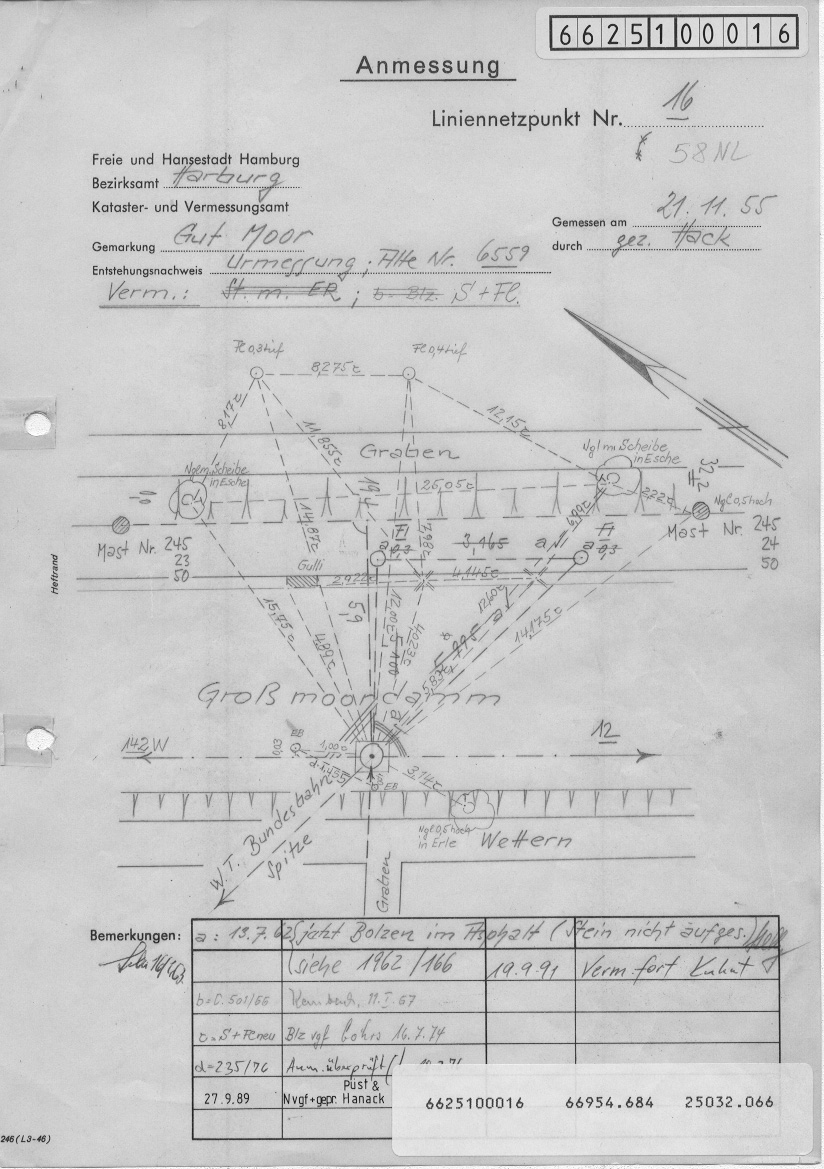 6625100016
Anmessung
Liniennetzpunkt Nr. 16
58 NL
Freie und Hansestadt Hamburg
Bezirksamt Harburg
Kataster- und Vermessungsamt
Gemessen am 21.11.55
durch gez. Hack
Gemarkung Gut Moor
Entstehungsnachweis Urmessung; Alte Nr. 6559
Verm.: St. m. ER; b = Blz. S + Fl.
Fl 0,3 tief
8,275c
Fl 0,4 tief
8,17c
11,855c
12,15c
Graben
Ngl m. Scheibe
in Esche
Ngl m. Scheibe
in Esche
26,05c
2,22c
32,2
Ngl 0,5 hoch
19,4
14,87c
7,98c
6,99c
Mast Nr. 245
23
50
Mast Nr. 245
24
50
Fl
a 0,3
3,165
a
Fl
a 0,3
Gulli
2,92c
4,145c
5,9
15,75c
4,89c
4,023c
12,60c
14,175c
Großmoordamm
142 W
12
EB
0,03
1,00c
d=1,435
EB
3,14c
W.T. Bundesbahn
Spitze
Graben
Ngl 0,5 hoch
in Erle
Wettern
Heftrand
Bemerkungen:
a: 13.7.62 jetzt Bolzen im Asphalt (Stein nicht aufges.)
(siehe 1962/166
19.9.91 Verm. fort
b=C. 501/66
11.I.67
c=S+Fl neu Blz vgf Cohrs 16.7.74
d=235/76 Anm. überprüft
27.9.89 Nvgf+gepr. Püst & Hanack
6625100016 66954.684 25032.066
246 (L3-46)